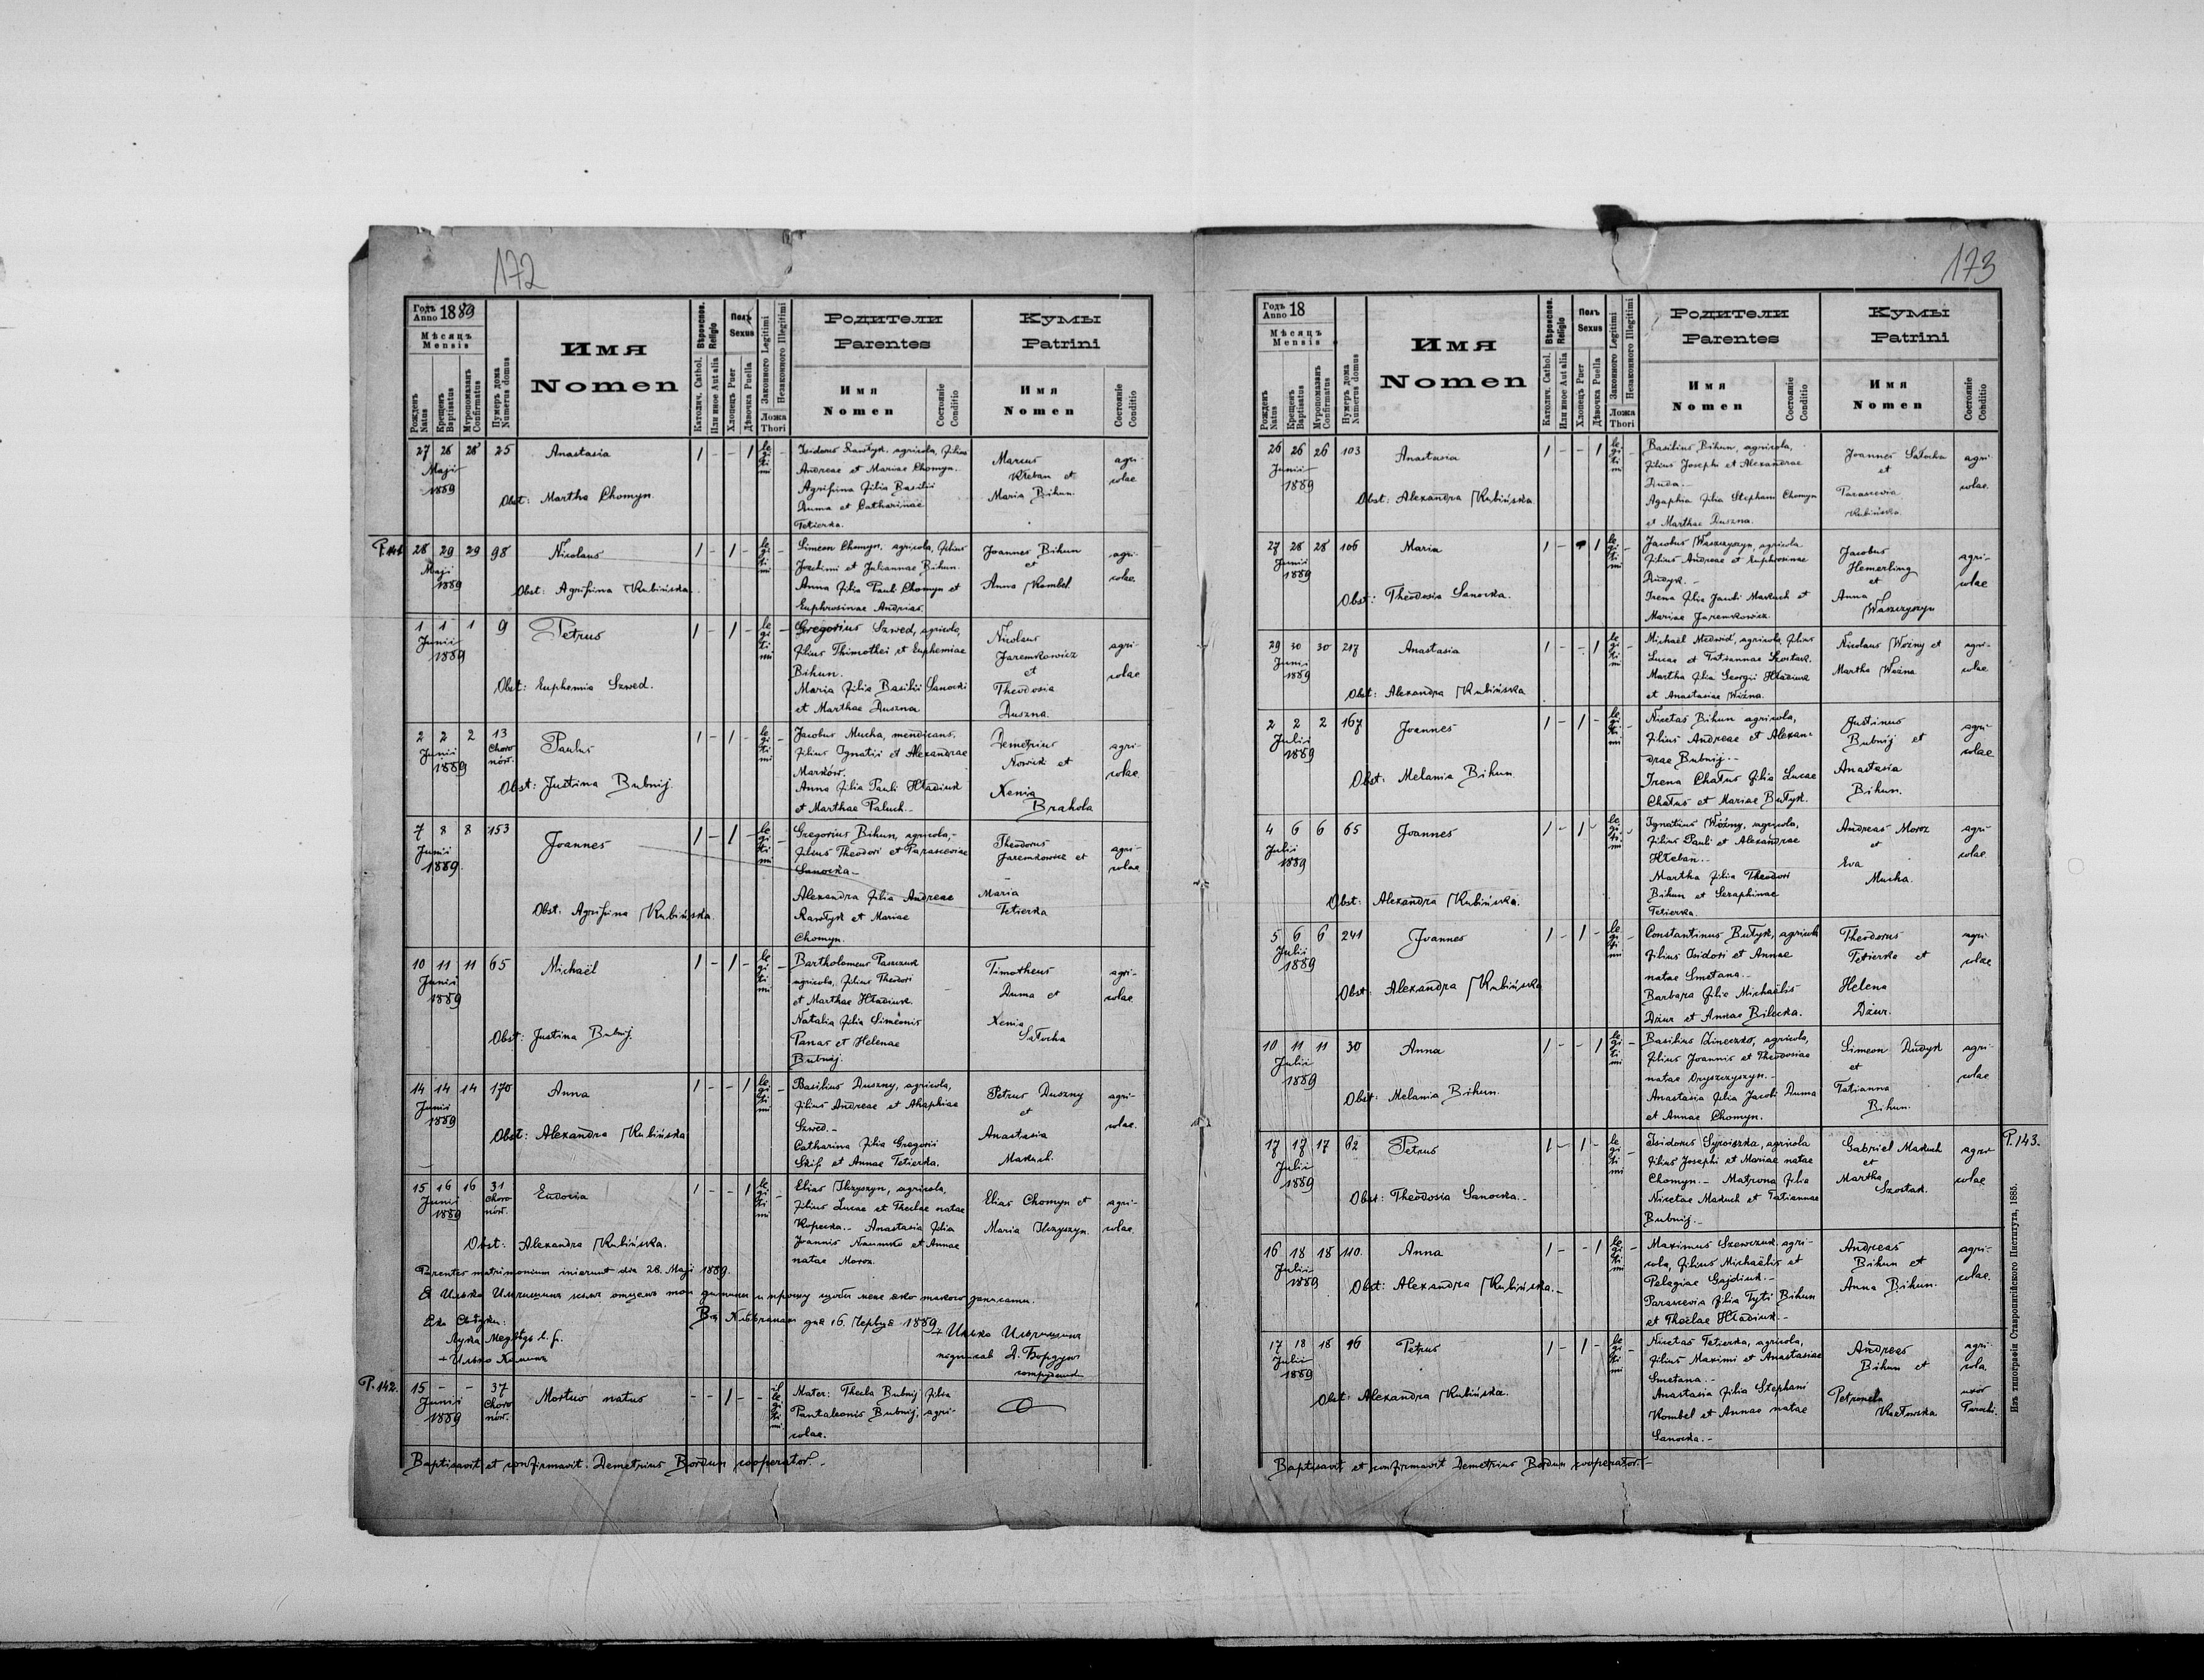 172
Годъ Anno 1889
Мѣсяцъ Mensis
Рожденъ Natus
Крещенъ Baptisatus
Мѵропомазанъ Confirmatus
Нумеръ дома Numerus domus
Имя
Nomen
Вѣроисповѣд. Religio
Католич. Cathol.
Или иное Aut alia
Полъ Sexus
Хлопецъ Puer
Дѣвочка Puella
Законного Legitimi
Незаконного Illegitimi
Ложа Thori
Родители
Parentes
Имя
Nomen
Состояніе Conditio
Кумы
Patrini
Имя
Nomen
Состояніе Conditio
27 28 28 25 Anastasia 1 - - 1 legitimi -
Maji
1889
Obst: Martha Chomyn.
Isidorus Rawłyk, agricola, filius
Andreae et Mariae Chomyn.
Agrifina filia Basilii
Duma et Catharinae
Tetierka.
Marcus
Hłeban et
Maria Bihun.
agri-
colae
P. 141
28 29 29 98 Nicolaus 1 - 1 - legitimi -
Maji
1889
Obst: Agrifina Kubińska.
Simeon Chomyn, agricola, filius
Joachimi et Juliannae Bihun.
Anna filia Pauli Chomyn et
Euphrosinae Andrias.
Joannes Bihun
et
Anna Kombel.
agri-
colae
1 1 1 9 Petrus 1 - 1 - legitimi -
Junii
1889
Obst: Euphemia Szwed.
Gregorius Szwed, agricola,
filius Thimothei et Euphemiae
Bihun.
Maria filia Basilii Sanocki
et Marthae Duszna
Nicolaus
Jaremkowicz
et
Theodosia
Duszna.
agri-
colae
2 2 2 13 Choronów. Paulus 1 - 1 - legitimi -
Junii
1889
Obst: Justina Bubnij
Jacobus Mucha, mendicans,
filius Ignatii et Alexandrae
Marków.
Anna filia Pauli Hładiuk
et Marthae Paluch.-
Demetrius
Nowick et
Xenia
Brahola
agri-
colae
7 8 8 153 Joannes 1 - 1 - legitimi -
Junii
1889.
Obst: Agrifina Kubińska.
Gregorius Bihun, agricola,-
filius Theodori et Parasceviae
Sanocka-
Alexandra filia Andreae
Rawłyk et Mariae
Chomyn.
Theodorus
Jaremkowicz et
Maria
Tetierka
agri-
colae
10 11 11 65 Michaël 1 - 1 - legitimi -
Junii
1889
Obst: Justina Bubnij.
Bartholomeus Paszczuk
agricola, filius Theodori
et Marthae Hładiuk.
Natalia filia Simeonis
Panas et Helenae
Bubnij.
Timotheus
Duma et
Xenia
Sałocha
agri-
colae
14 14 14 170 Anna 1 - - 1 legitimi -
Junii
1889
Obst: Alexandra Kubińska
Basilius Duszny, agricola,
filius Andreae et Ahaphiae
Szwed.-
Catharina filia Gregorii
Skif. et Annae Tetierka.
Petrus Duszny
et
Anastasia
Makuch.
agri-
colae.
15 16 16 31 Choronów. Eudoxia 1 - - 1 legitimi -
Junii
1889
Obst: Alexandra Kubińska.
Elias Ilczyszyn, agricola,
filius Lucae et Theclae natae
Kopecka.- Anastasia filia
Joannis Naumko et Annae
natae Moroz.
Elias Chomyn et
Maria Ilczyszyn.
agri-
colae
Parentes matrimonium inierunt die 28. Maji 1889.
16. 1889
P. 142.
15 - - 37 Choronów. Mortuo natus - - 1 - illegitimi
Junii
1889
Mater: Thecla Bubnij filia
Pantaleonis Bubnij, agri-
colae.
Baptisavit et confirmavit: Demetrius Bordun cooperator.-
173
Годъ Anno 18
Мѣсяцъ Mensis
Рожденъ Natus
Крещенъ Baptisatus
Мѵропомазанъ Confirmatus
Нумеръ дома Numerus domus
Имя
Nomen
Вѣроисповѣд. Religio
Католич. Cathol.
Или иное Aut alia
Полъ Sexus
Хлопецъ Puer
Дѣвочка Puella
Законного Legitimi
Незаконного Illegitimi
Ложа Thori
Родители
Parentes
Имя
Nomen
Состояніе Conditio
Кумы
Patrini
Имя
Nomen
Состояніе Conditio
26 26 26 103 Anastasia 1 - - 1 legitimi -
Junii
1889
Obst: Alexandra Kubińska
Basilius Bihun, agricola,
filius Josephi et Alexandrae
Duda.-
Agaphia filia Stephani Chomyn
et Marthae Duszna.
Joannes Sałocha
et
Parascevia
Kubińska.
agri-
colae.
27 28 28 106 Maria 1 - 1 legitimi -
Junii
1889
Obst: Theodosia Sanocka.
Jacobus Waszczyszyn, agricola
filius Andreae et Euphrosinae
Dudyk.-
Irena filia Jacobi Makuch et
Mariae Jaremkowicz.
Jacobus
Hemerling
et
Anna
Waszczyszyn
agri-
colae
29 30 30 217 Anastasia 1 - - 1 legitimi -
Junii
1889
Obst: Alexandra Kubińska
Michaël Medwid, agricola, filius
Lucae et Tatiannae Szostak.
Martha filia Georgii Hładiuk
et Anastasiae Woźna.
Nicolaus Woźny et
Martha Woźna
agri-
colae
2 2 2 167 Joannes 1 - 1 - legitimi -
Julii
1889
Obst: Melania Bihun.
Nicetas Bihun agricola,
filius Andreae et Alexan-
drae Bubnij.-
Irena Chatus filia Lucae
Chatus et Mariae Butyk.
Justinus
Bubnij et
Anastasia
Bihun.
agri-
colae
4 6 6 65 Joannes 1 - 1 - legitimi -
Julii
1889
Obst: Alexandra Kubińska.
Ignatius Woźny, agricola,
filius Pauli et Alexandrae
Hłeban.-
Martha filia Theodori
Bihun et Seraphinae
Tetierka.
Andreas Moroz
et
Eva
Mucha.
agri-
colae
5 6 6 241 Joannes 1 - 1 - legitimi -
Julii
1889
Obst: Alexandra Kubińska
Constantinus Butyk, agricola
filius Isidori et Annae
natae Smetana.-
Barbara filia Michaëlis
Dżur et Annae Bilecka.
Theodorus
Tetierka et
Helena
Dżur.
agri-
colae
10 11 11 30 Anna 1 - - 1 legitimi -
Julii
1889
Obst: Melania Bihun.
Basilius Zineczko, agricola,
filius Joannis et Theodosiae
natae Oryszczyszyn.-
Anastasia filia Jacobi Duma
et Annae Chomyn.
Simeon Dudyk
et
Tatianna
Bihun.
agri-
colae
P. 143.
17 17 17 62 Petrus 1 - 1 - legitimi -
Julii
1889
Obst: Theodosia Sanocka.-
Isidorus Syroiszka, agricola
filius Josephi et Mariae natae
Chomyn.- Matrona filia
Nicetae Makuch et Tatiannae
Bubnij.-
Gabriel Makuch
et
Martha
Szostak.
agri-
colae
16 18 18 110. Anna 1 - - 1 legitimi -
Julii
1889
Obst: Alexandra Kubińska.-
Maximus Szewczuk agri-
cola, filius Michaëlis et
Pelagiae Gajdiuk.-
Parascevia filia Tyti Bihun
et Theclae Hładiuk.-
Andreas
Bihun et
Anna Bihun.
agri-
colae.
17 18 18 46 Petrus 1 - 1 - legitimi -
Julii
1889
Obst: Alexandra Kubińska.
Nicetas Tetierka, agricola,
filius Maximi et Anastasiae
Smetana.-
Anastasia filia Stephani
Kombel et Annae natae
Sanocka.-
Andreas
Bihun et
Petronela
agri-
cola.
uxor
Parochi.
Baptisavit et confirmavit Demetrius Bordun cooperator.-
Изъ типографіи Ставропигійского Института, 1885.